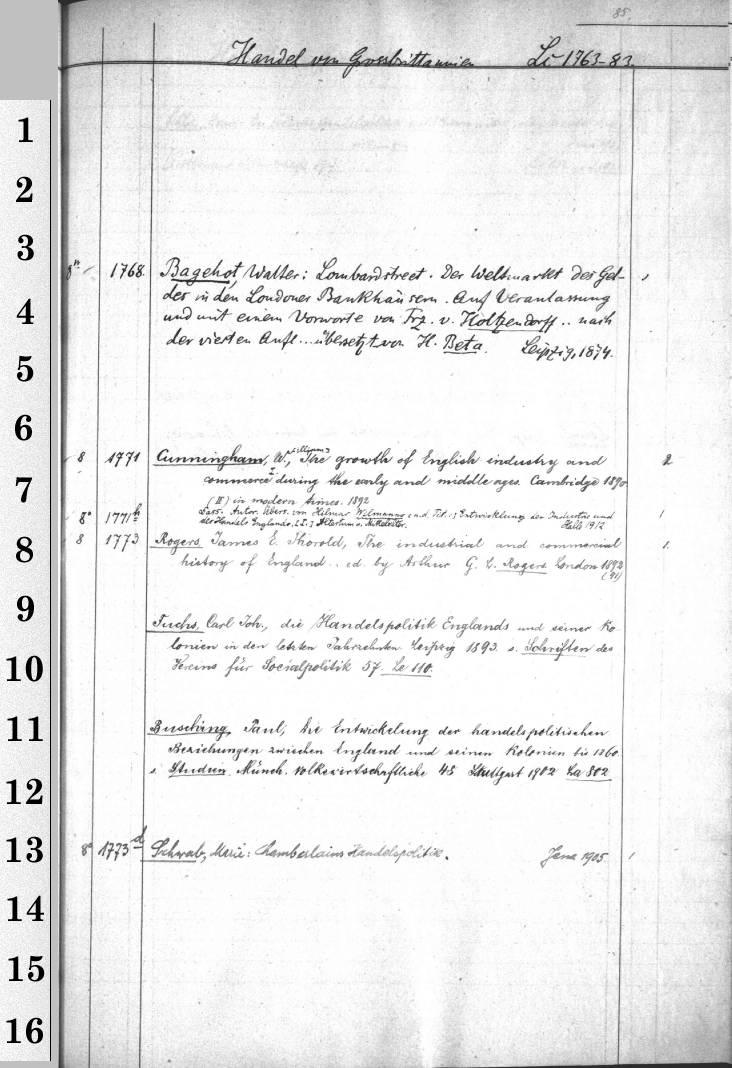 85.
Handel von Grossbrittannien Li 1763-83.
1
2
3
8° 1768. Bagehot, Walter: Lombardstreet. Der Weltmarkt des Gel-
des in den Londoner Bankhäusern. Auf Veranlassung
4
und mit einem Vorworte von Frz. v. Holtzendorff .. nach
der vierten Aufl. ... übersetzt von H. Beta. Leipzig, 1874.
5
6
8 1771 Cunningham, W., The growth of English industry and 2
commerce I during the early and middle ages. Cambridge 1890
7
(II) in modern times. 1892
8° 1771b Dass. Autor. Übers. von Hilmar Wilmanns u. d. Tit.: Entwicklung der Industrie und 1
des Handels Englands. [I.] Altertum u. Mittelalter. Halle 1912
8 1773 Rogers, James E. Thorold, The industrial and commercial 1.
8
history of England .. ed. by Arthur G. L. Rogers London 1892
(91)
9
Fuchs, Carl Joh., die Handelspolitik Englands und seiner Ko
lonien in den letzten Jahrzehnten. Leipzig 1893. s. Schriften des
10
Vereins für Socialpolitik 57. Le 110.
11
Busching, Paul, die Entwickelung der handelspolitischen
Beziehungen zwischen England und seinen Kolonien bis 1860.
s. Studien. Münch. volkswirtschaftliche 48 Stuttgart 1902 La 802
12
13
8° 1773d Schwab, Marie: Chamberlains Handelspolitik. Jena 1905. 1
14
15
16